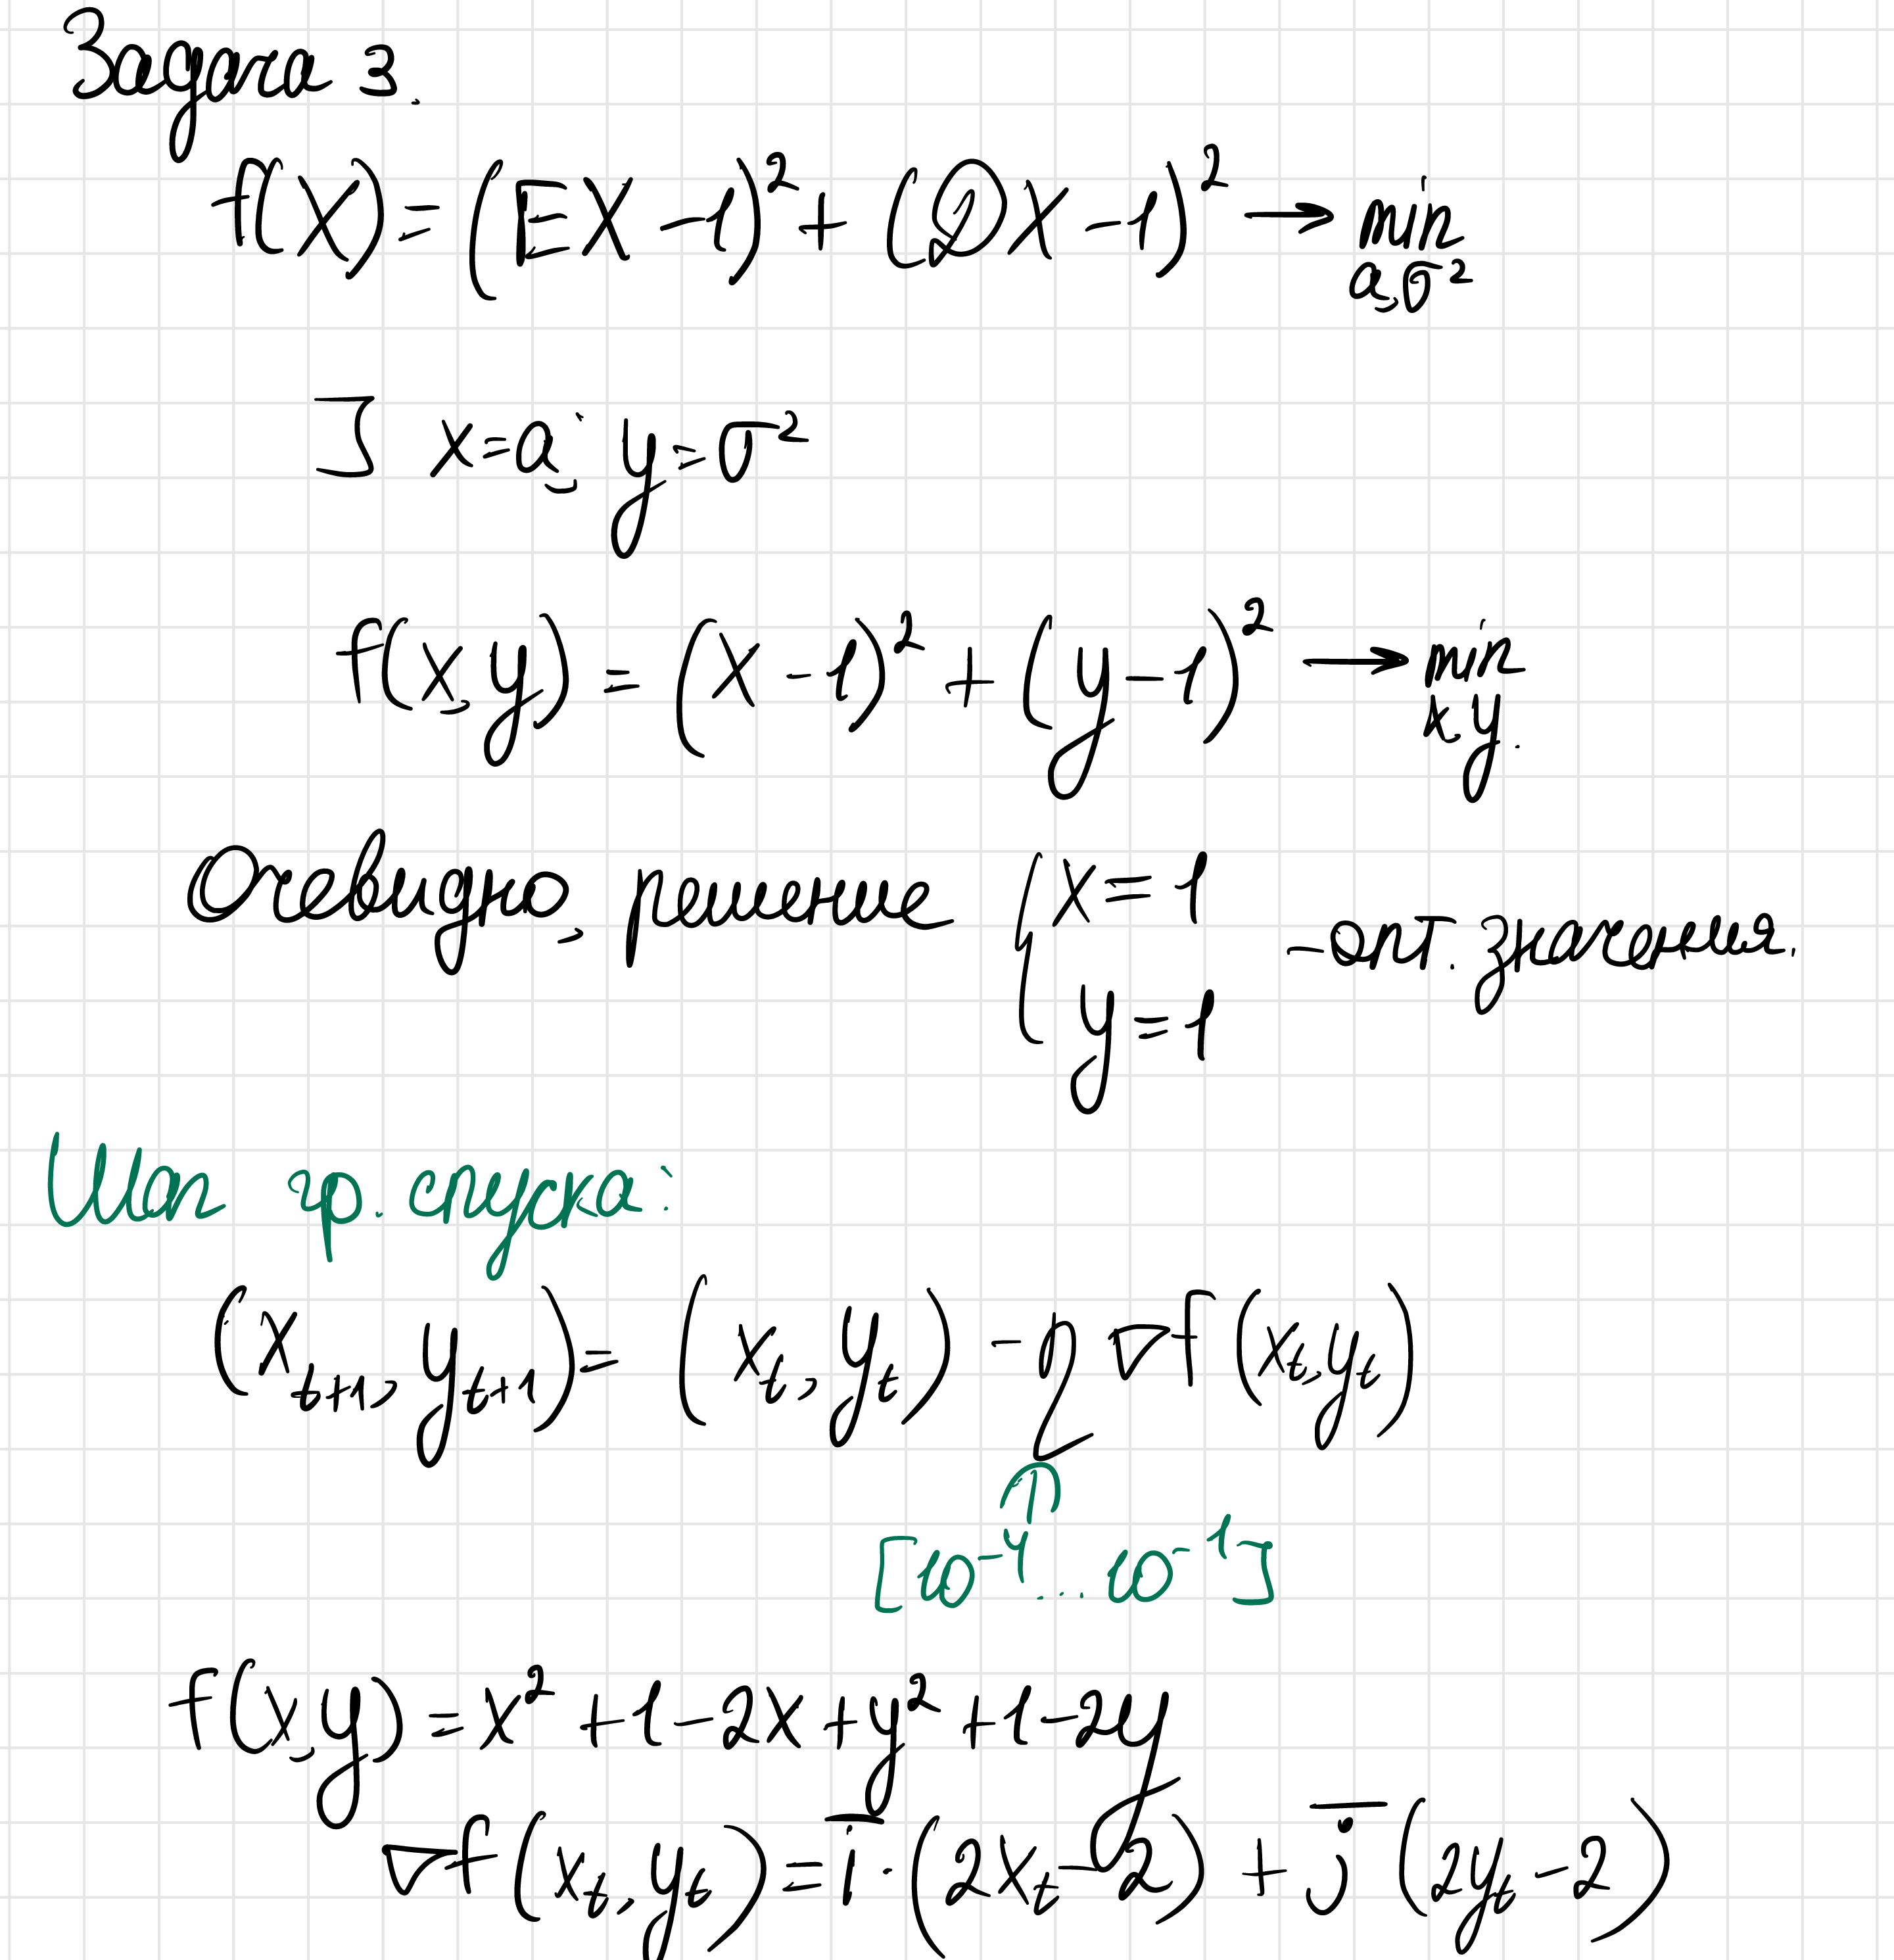 Задача 3.
f(X) = (EX - 1)² + (DX - 1)² → min
a, σ²
] x = a; y = σ²
f(x, y) = (x - 1)² + (y - 1)² → min
x, y.
Очевидно, решение { x = 1
y = 1
- опт. значения.
Шаг гр. спуска:
(x_{t+1}, y_{t+1}) = (x_t, y_t) - η ∇f(x_t, y_t)
↑
[10⁻⁴ ... 10⁻¹]
f(x, y) = x² + 1 - 2x + y² + 1 - 2y
∇f(x_t, y_t) = i̅ · (2x_t - 2) + j̅ (2y_t - 2)